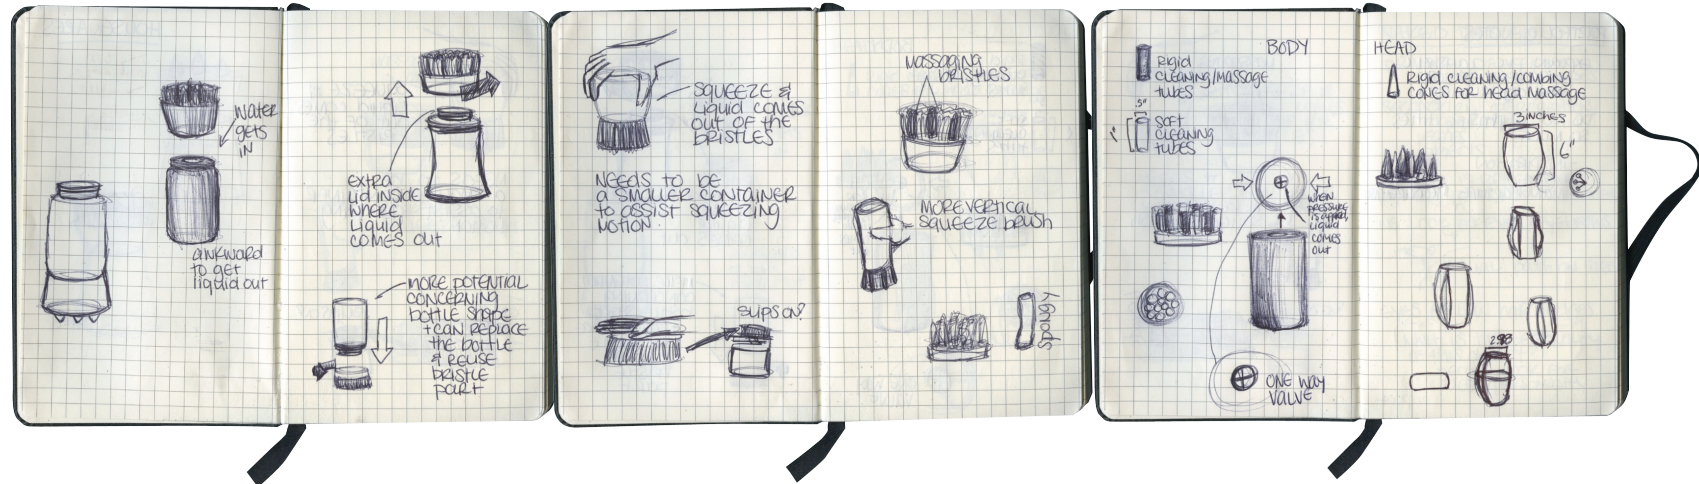 WATER
GETS
IN
AWKWARD
TO GET
liquid out
EXTRA
Lid INSIDE
WHERE
LIQUID
COMES OUT
MORE POTENTIAL
CONCERNING
BOTTLE SHAPE
+ CAN REPLACE
THE BOTTLE
& REUSE
BRISTLE
PART
SQUEEZE &
LIQUID COMES
OUT OF THE
BRISTLES
NEEDS TO BE
A SMALLER CONTAINER
TO ASSIST SQUEEZING
MOTION
SLIPS ON?
MASSAGING
BRISTLES
MORE VERTICAL
SQUEEZE BRUSH
SPONGY
BODY
RIGID
CLEANING/MASSAGE
TUBES
.5"
1"
SOFT
CLEANING
TUBES
WHEN
PRESSURE
IS APPLIED,
LIQUID
COMES
OUT
ONE WAY
VALVE
HEAD
RIGID CLEANING/COMBING
CONES FOR HEAD MASSAGE
3 INCHES
6"